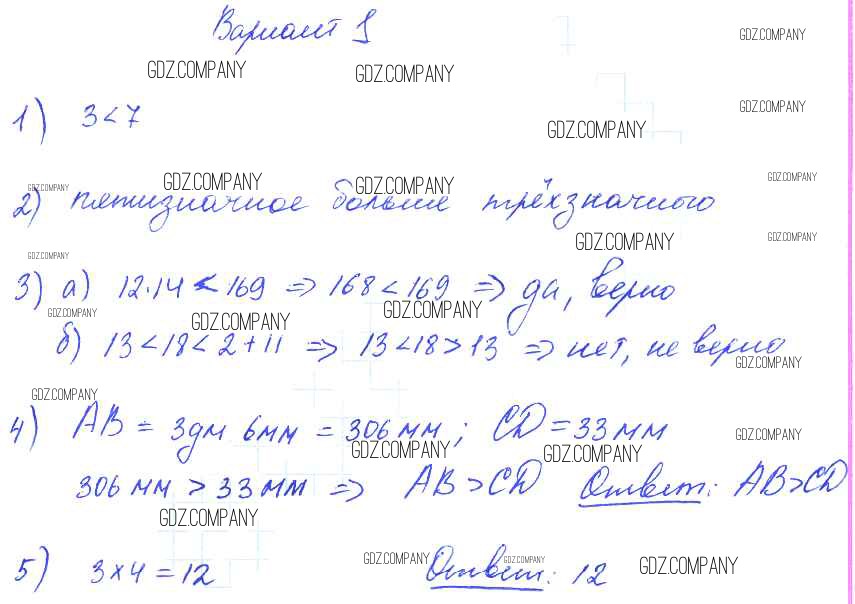 Вариант 1
GDZ.COMPANY
GDZ.COMPANY GDZ.COMPANY
GDZ.COMPANY
1) 3<7
GDZ.COMPANY
GDZ.COMPANY GDZ.COMPANY GDZ.COMPANY GDZ.COMPANY
2) пятизначное больше трёхзначного
GDZ.COMPANY GDZ.COMPANY
GDZ.COMPANY
3) а) 12·14 < 169 => 168 < 169 => да, верно
GDZ.COMPANY GDZ.COMPANY GDZ.COMPANY
б) 13 < 18 < 2 + 11 => 13 < 18 > 13 => нет, не верно
GDZ.COMPANY
GDZ.COMPANY
4) AB = 3дм 6мм = 306 мм; CD = 33 мм
GDZ.COMPANY GDZ.COMPANY GDZ.COMPANY
306 мм > 33 мм => AB > CD Ответ: AB>CD
GDZ.COMPANY
GDZ.COMPANY GDZ.COMPANY GDZ.COMPANY
5) 3×4 = 12 Ответ: 12